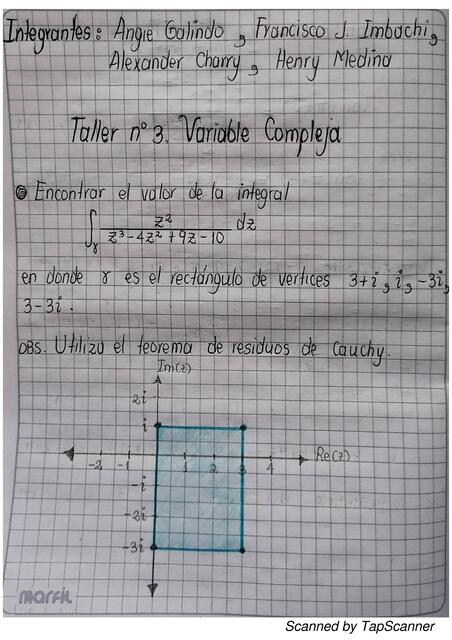 Integrantes: Angie Galindo, Francisco J. Imbachi,
Alexander Charry, Henry Medina
Taller n° 3. Variable Compleja
Encontrar el valor de la integral
∫γ z²/(z³-4z²+9z-10) dz
en donde γ es el rectángulo de vertices 3+i, i, -3i,
3-3i.
OBS. Utilizo el teorema de residuos de Cauchy.
Im(z)
2i
i
-2 -1 1 2 3 4 Re(z)
-i
-2i
-3i
marfil
Scanned by TapScanner